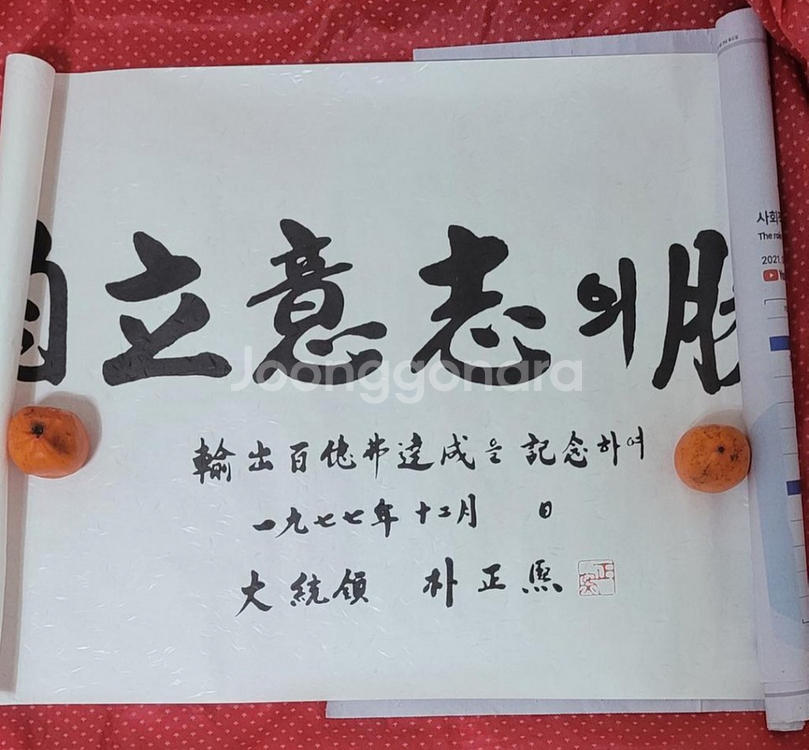 自立意志의
Joonggonara
輸出百億弗達成을 記念하여
一九七七年 十二月 日
大統領 朴正熙
사회
The
2021.